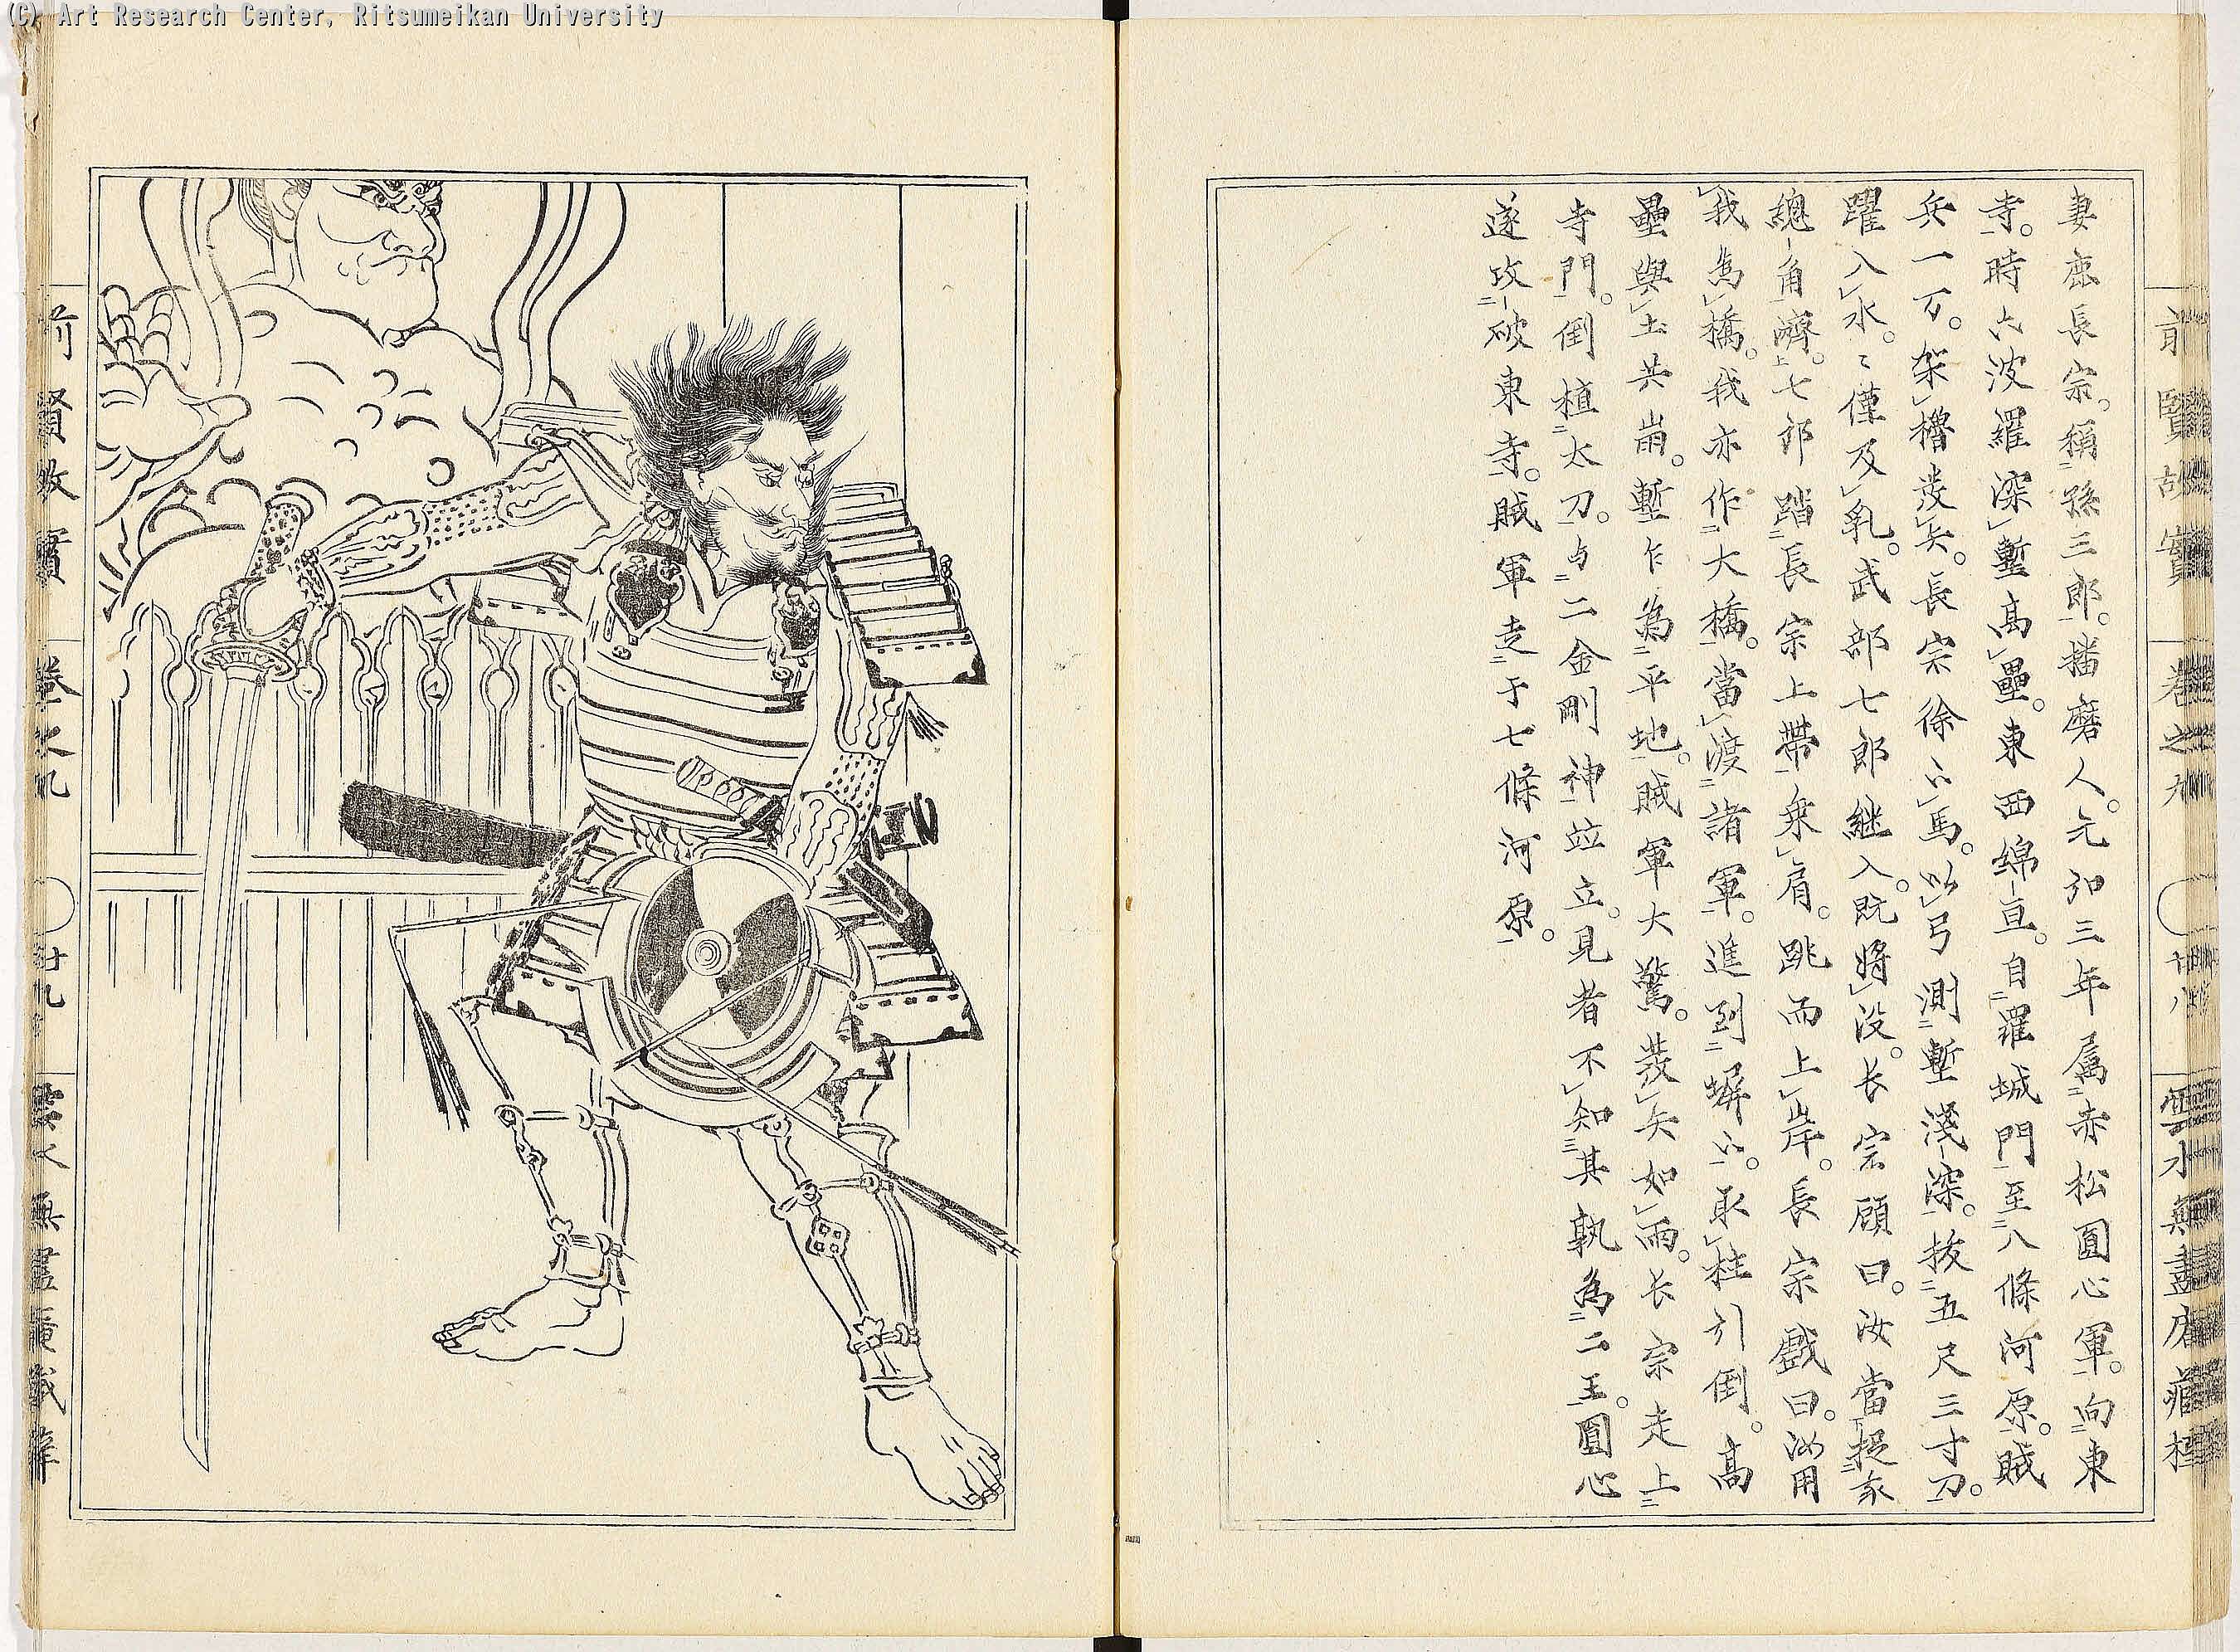 (C) Art Research Center, Ritsumeikan University
前賢故實 巻之九 廿八 雲水無盡庵藏梓
妻鹿長宗。稱孫三郎。播磨人。元弘三年属赤松圓心軍。向東
寺。時六波羅深塹高壘。東西綿亘。自羅城門至八條河原。賊
兵一万。架櫓發矢。長宗徐下馬。以弓測塹淺深。抜五尺三寸刀。
躍入水。〻僅及乳。武部七郎継入。既將没。长宗顧曰。汝當捉家
總角濟。七郎踏長宗上帶乘肩。跳而上岸。長宗戯曰。汝用
我為橋。我亦作大橋。當渡諸軍。進到塀下。取柱引倒。高
壘與土共崩。塹乍為平地。賊軍大驚。發矢如雨。长宗走上
寺門。倒植太刀。与二金剛神竝立。見者不知其孰為二王。圓心
遂攻破東寺。賊軍走于七條河原。
前賢故實 巻之九 廿九 雲水無盡庵藏梓